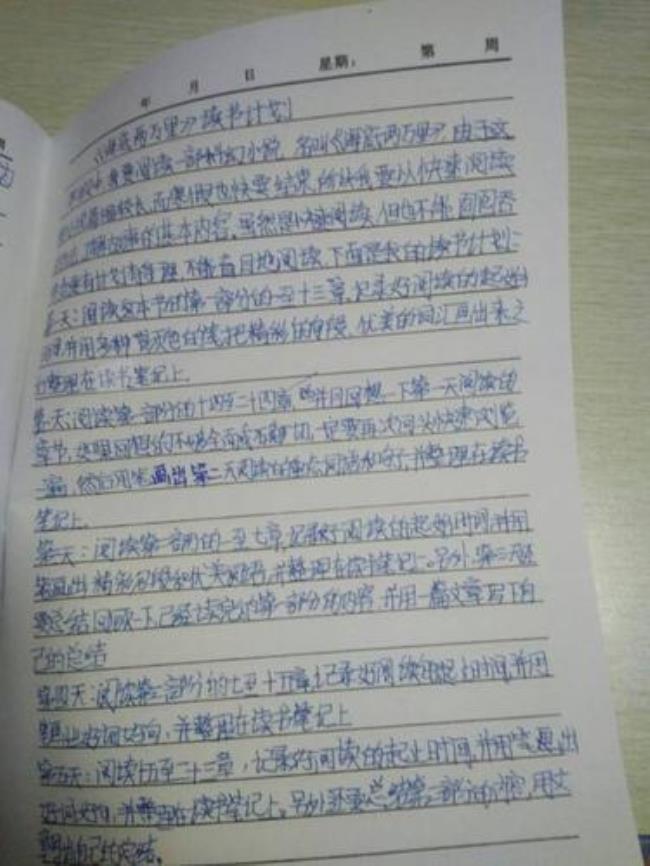 年 月 日 星期: 第 周
《海底两万里》读书计划
我要阅读一部科幻小说,名叫《海底两万里》,由于这
篇幅较长,而寒假也快要结束,所以我要以快速阅读
的基本内容,虽然是快速阅读,但也不能
要有计划有条理,不能盲目地阅读,下面是我的读书计划:
第一天:阅读这本书的第一部分的一至十三章,记录好阅读的起始
时间,并用多种颜色的笔把精彩的片段、优美的词汇画出来之
后整理在读书笔记上。
第二天:阅读第一部分的十四至二十四章,并且回想一下第一天阅读的
章节,如果回想的不够全面或不确切,一定要再次回头快速浏览
一遍,然后用笔画出第二天阅读的词语和句子,并整理在读书
笔记上。
第三天:阅读第二部分的一至七章,记录好阅读的起始时间,并用
笔画出精彩片段和优美,并整理在读书笔记上。另外,第三天还
要总结回顾一下已经读完的第一部分的内容,并用一篇文章写下自
己的总结
第四天:阅读第二部分的七至十五章,记录好阅读的起止时间,并用
笔画出好词好句,并整理在读书笔记上
第五天:阅读十五至二十三章,记录好阅读的起止时间,并用笔画出
好词好句,并整理在读书笔记上。另外还要总结第二部分的内容,用文
章写出自己的总结。